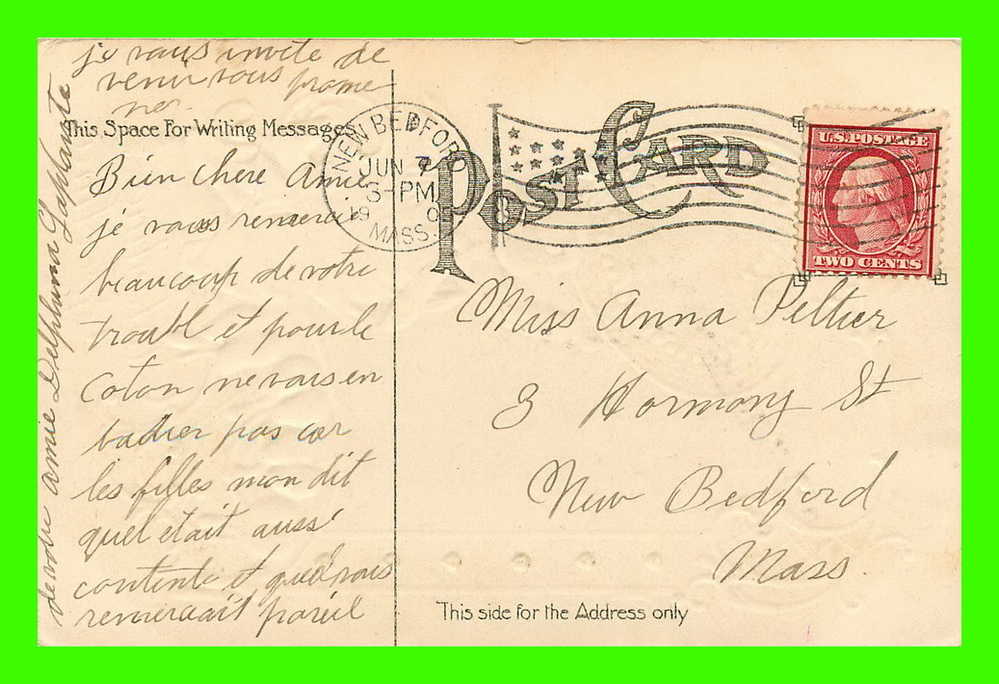 je vous invite de
venir vous prome
ner.
This Space For Writing Messages
Bien Chere Amie
je vous remercie
beaucoup de votre
troubl et pour le
Coton ne vous en
badrer pas car
les filles mon dit
quel etait aussi
contente et qued vous
remerciait pareil
de votre amie Delphina Laplante
NEW BEDFORD
JUN 7
3-PM
19 0
MASS.
POST CARD
U.S. POSTAGE
TWO CENTS
Miss Anna Peltier
3 Hormony St
New Bedford
Mass.
This side for the Address only